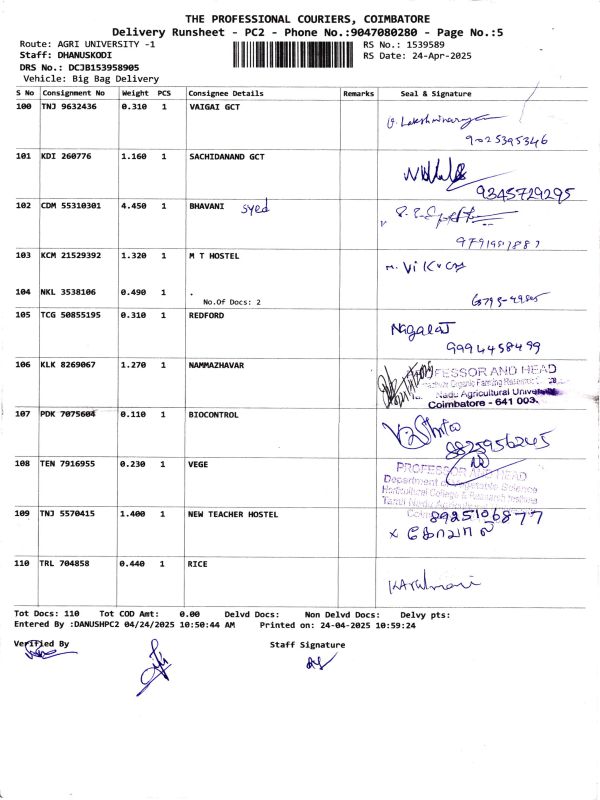 THE PROFESSIONAL COURIERS, COIMBATORE
Delivery Runsheet - PC2 - Phone No.:9047080280 - Page No.:5
Route: AGRI UNIVERSITY -1
RS No.: 1539589
Staff: DHANUSKODI
RS Date: 24-Apr-2025
DRS No.: DCJB153958905
Vehicle: Big Bag Delivery
S No Consignment No Weight PCS Consignee Details Remarks Seal & Signature
100 TNJ 9632436 0.310 1 VAIGAI GCT
9025395346
101 KDI 260776 1.160 1 SACHIDANAND GCT
9345729295
102 CDM 55310301 4.450 1 BHAVANI syed
103 KCM 21529392 1.320 1 M T HOSTEL
104 NKL 3538106 0.490 1 .
No.Of Docs: 2
105 TCG 50855195 0.310 1 REDFORD
Nagaraj
9994458499
106 KLK 8269067 1.270 1 NAMMAZHAVAR
PROFESSOR AND HEAD
Organic Farming Research
Nadu Agricultural University
Coimbatore - 641 003.
107 PDK 7075604 0.110 1 BIOCONTROL
108 TEN 7916955 0.230 1 VEGE
PROFESSOR AND HEAD
Department of Vegetable Science
Horticultural College & Research Institute
109 TNJ 5570415 1.400 1 NEW TEACHER HOSTEL
8925106877
110 TRL 704858 0.440 1 RICE
Tot Docs: 110 Tot COD Amt: 0.00 Delvd Docs: Non Delvd Docs: Delvy pts:
Entered By :DANUSHPC2 04/24/2025 10:50:44 AM Printed on: 24-04-2025 10:59:24
Verified By Staff Signature